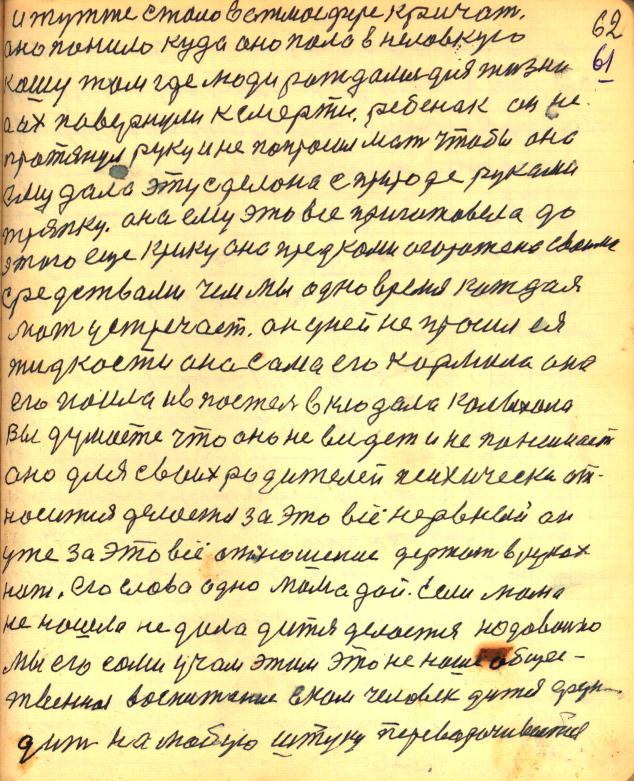 и тутже стало в атмосфере кричат.
62
оно поняло куда оно попа в неловкую
61
кашу там где люди рождались для жизни
а их повернули к смерти. ребенак он не
протянул руку и не попросил мат чтобы она
ему дала эту сделона с природе руками
тряпку. она ему это все приготовела до
этого еще крику она предками огорожена своима
средствами чем мы одно время каждая
мат устречает. он у ней не просил ея
жидкости она сама его кормила она
его поила и в постел вклодала колыхала
Вы думаете что оно не видет и не понимает
оно для своих родителей психически от-
носится делоется за это всё нервный он
уже за это всё отношение держат в руках
нат. его слова одно мама дай. Если мама
не нашла не дала дитя делоется
мы его сами учам этим это не наше обще-
твенная воспитание каком человек дитя
дит на любую штуку